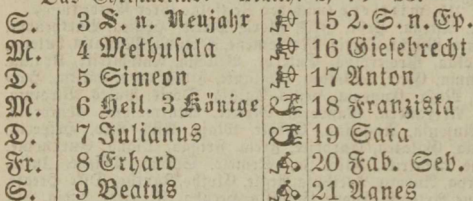 S. 3 S. n. Neujahr 15 2. S. n. Ep.
M. 4 Methusala 16 Giesebrecht
D. 5 Simeon 17 Anton
M. 6 Heil. 3 Könige 18 Franziska
D. 7 Julianus 19 Sara
Fr. 8 Erhard 20 Fab. Seb.
S. 9 Beatus 21 Agnes